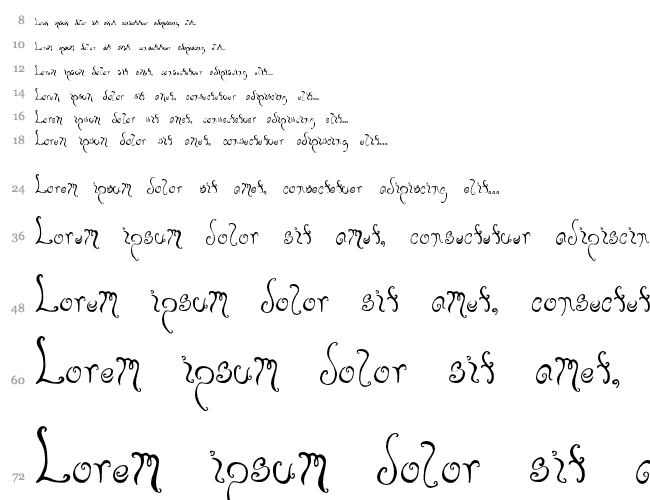 8 Lorem ipsum dolor sit amet, consectetuer adipiscing elit...
10 Lorem ipsum dolor sit amet, consectetuer adipiscing elit...
12 Lorem ipsum dolor sit amet, consectetuer adipiscing elit...
14 Lorem ipsum dolor sit amet, consectetuer adipiscing elit...
16 Lorem ipsum dolor sit amet, consectetuer adipiscing elit...
18 Lorem ipsum dolor sit amet, consectetuer adipiscing elit...
24 Lorem ipsum dolor sit amet, consectetuer adipiscing elit...
36 Lorem ipsum dolor sit amet, consectetuer adipiscin
48 Lorem ipsum dolor sit amet, consectet
60 Lorem ipsum dolor sit amet,
72 Lorem ipsum dolor sit a